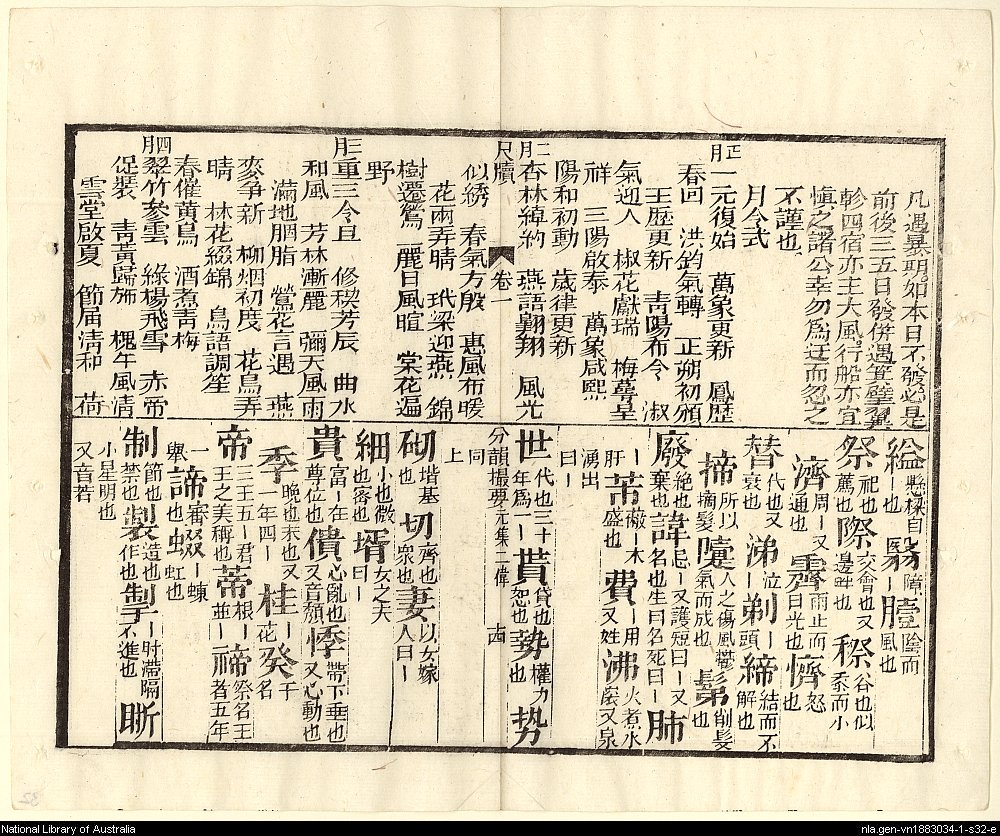 凡遇暴明如本日不發必是
前後三五日發併遇箕壁翼
軫四宿亦主大風行船亦宜
愼之諸公幸勿爲迂而忽之
不謹也
月令式
正月 一元復始 萬象更新 鳳歷
春回 洪鈞氣轉 正朔初頒
王歷更新 靑陽布令 淑
氣迎人 椒花獻瑞 梅萼呈
祥 三陽啟泰 萬象咸熙
陽和初動 歲律更新
二月 杏林綽約 燕語翺翔 風光
尺牘 卷一
似綉 春氣方殷 惠風布暖
花兩弄晴 玳梁迎燕 錦
樹遷鶯 麗日風暄 棠花遍
野
三月 重三令旦 修稧芳辰 曲水
和風 芳林漸麗 彌天風雨
滿地胭脂 鶯花言遇 燕
麥爭新 柳烟初度 花鳥弄
晴 林花綴錦 鳥語調笙
春催黄鳥 酒煮靑梅
四月 翠竹參雲 綠楊飛雪 赤帝
促裝 靑黃歸施 槐午風清
雲堂啟夏 節届清和 荷
縊 懸樑自丨也 翳 障丨 曀 陰而風也
祭 祀也薦也 際 交會也又邊畔也 穄 谷也似黍而小
濟 周丨又通也 霽 雨止而日光也 懠 怒也
替 代也又衰也 涕 泣丨 剃 丨頭 締 結而不解也
揥 所以摘髮 㿃 人之傷風鬱氣而成也 髴 削髮也
廢 絶也棄也 諱 忌丨又護短曰丨又名也生曰名死曰丨 肺
肝丨 芾 蔽丨木盛也 費 丨用又姓 沸 火煮水㵘又泉湧出
曰丨
分韻撮要元集二偉 古
世 代也三十年爲一丨 貰 貸也恕也 勢 權力也 势
同上
砌 堦基也 切 齊也衆也 妻 以女嫁人曰丨
細 小也微也密也 壻 女之夫曰丨
貴 富丨在尊位也 僓 心亂也又音頹 悸 帶下垂也又心動也
季 晚也末也又一年四丨 桂 丨花 癸 干名
帝 三王五丨君丨王之美稱也 蒂 根丨並丨 禘 祭名王者五年
一丨 諦 審丨擧也 蝃 丨蝀虹也
制 節也禁也 製 造也作也 掣 丨肘滯隔不進也 晣
小星明也
又音若
National Library of Australia
nla.gen-vn1883034-1-s32-e